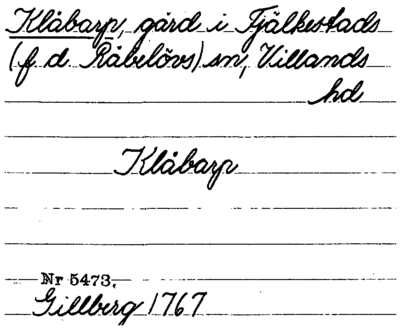 Klåbarp, gård i Fjälkestads
(f d Råbelövs) sn, Villands
hd
Klåbarp
Nr 5473.
Gillberg 1767